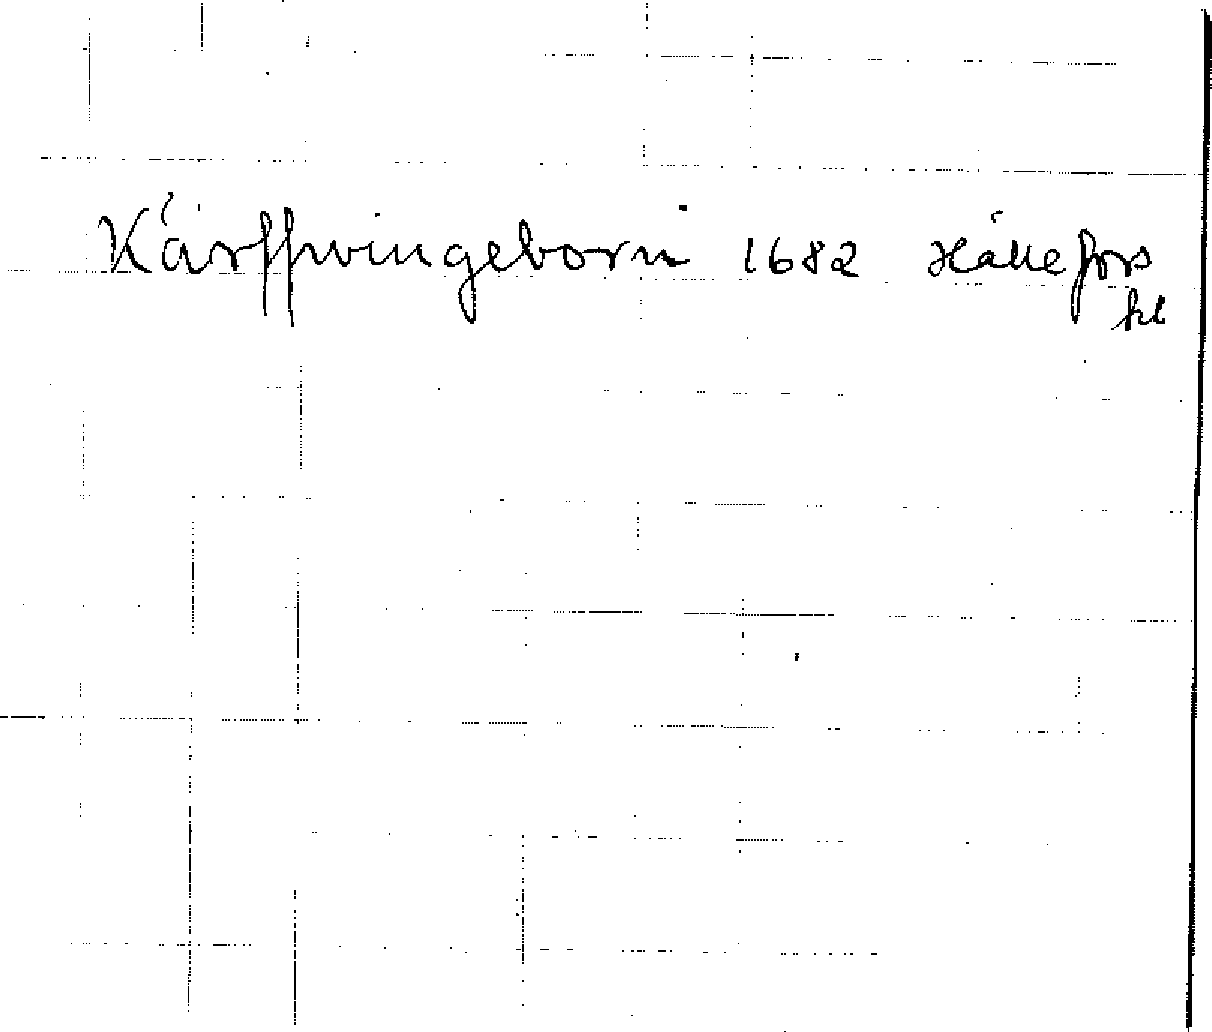 Kärffwingeborn 1682 Hällefors
kl